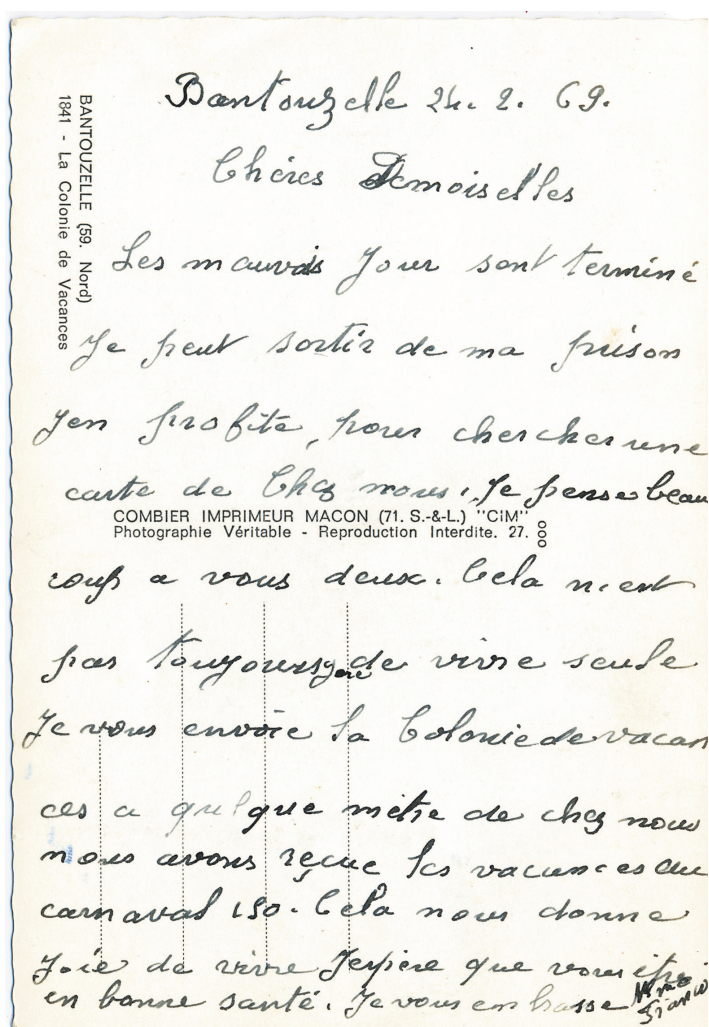 Bantouzelle 24. 2. 69.
Chéres Demoiselles
BANTOUZELLE (59. Nord)
1841 - La Colonie de Vacances
Les mauvais Jour sont terminé
Je peut sortir de ma prison
J'en profite, pour chercher une
carte de Chez nous. Je pense beau
COMBIER IMPRIMEUR MACON (71. S.-&-L.) "CiM"
Photographie Véritable - Reproduction Interdite. 27.
coup a vous deux. Cela n'est
pas toujours gaie de vivre seule
Je vous envoie la Colonie de vacan
ces a quelque métre de chez nous
nous avons reçue les vacances du
carnaval 150. Cela nous donne
Joie de vivre J'espère que vous
en bonne santé. Je vous embrasse Mme